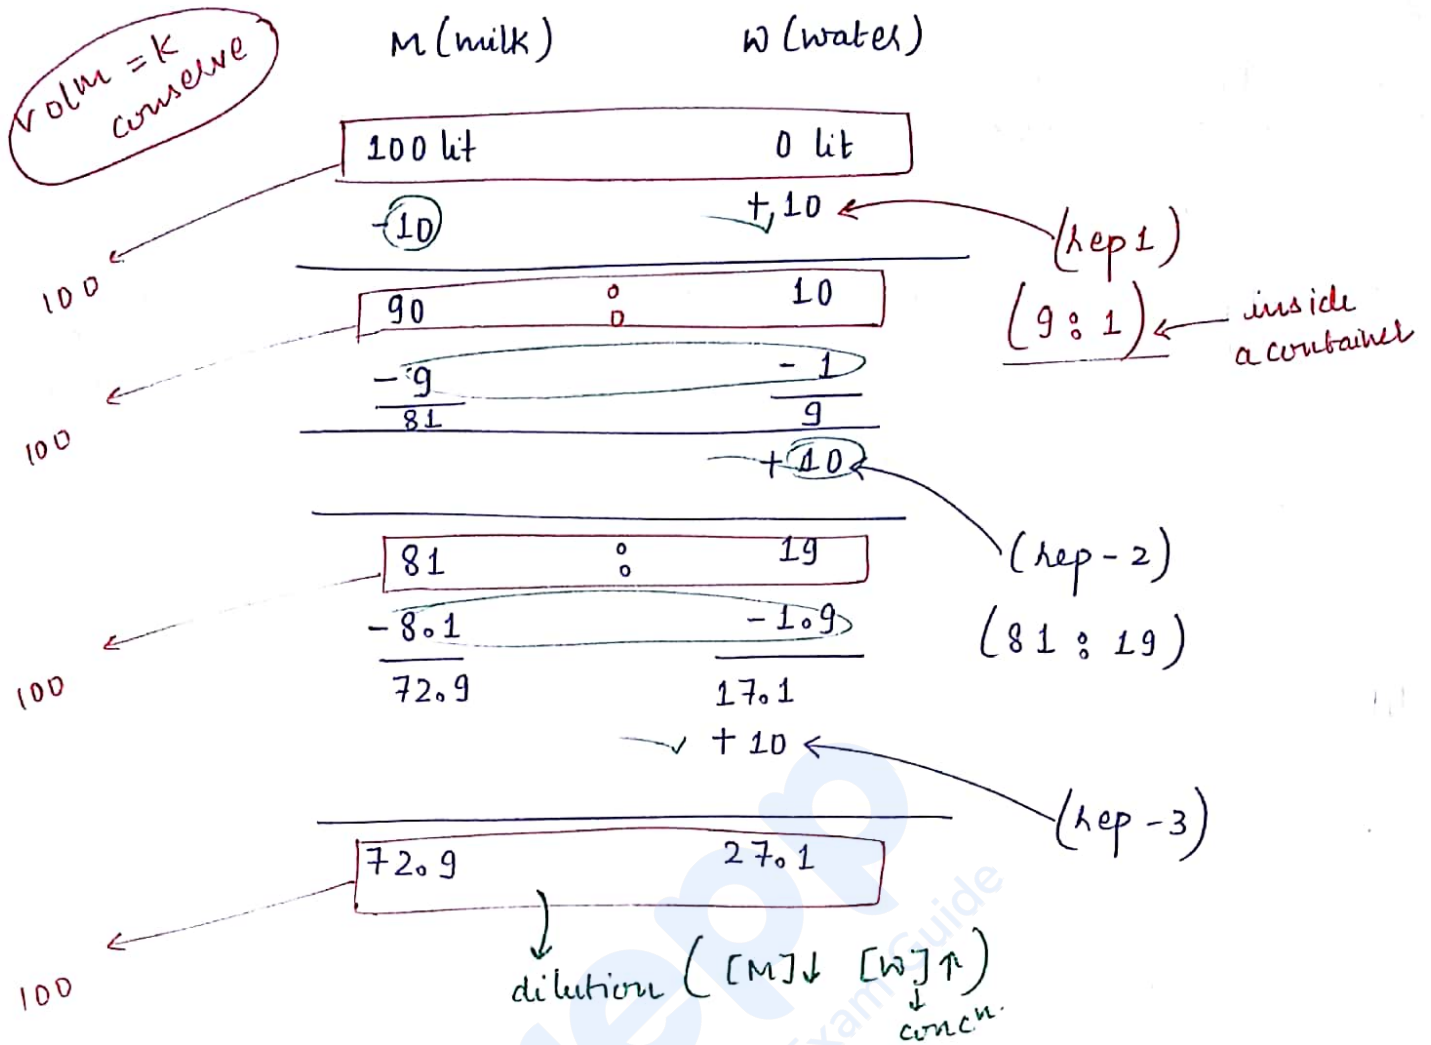 M (milk) W (water)
volm = k
conserve
100 lit 0 lit
-10 +10
(rep 1)
100
90 : 10
(9 : 1)
inside
a container
-9 -1
81 9
100
+10
(rep - 2)
81 : 19
(81 : 19)
-8.1 -1.9
100
72.9 17.1
+ 10
(rep - 3)
72.9 27.1
100
dilution ( [M]↓ [W]↑ )
↓
concn.
epp
Exam Guide